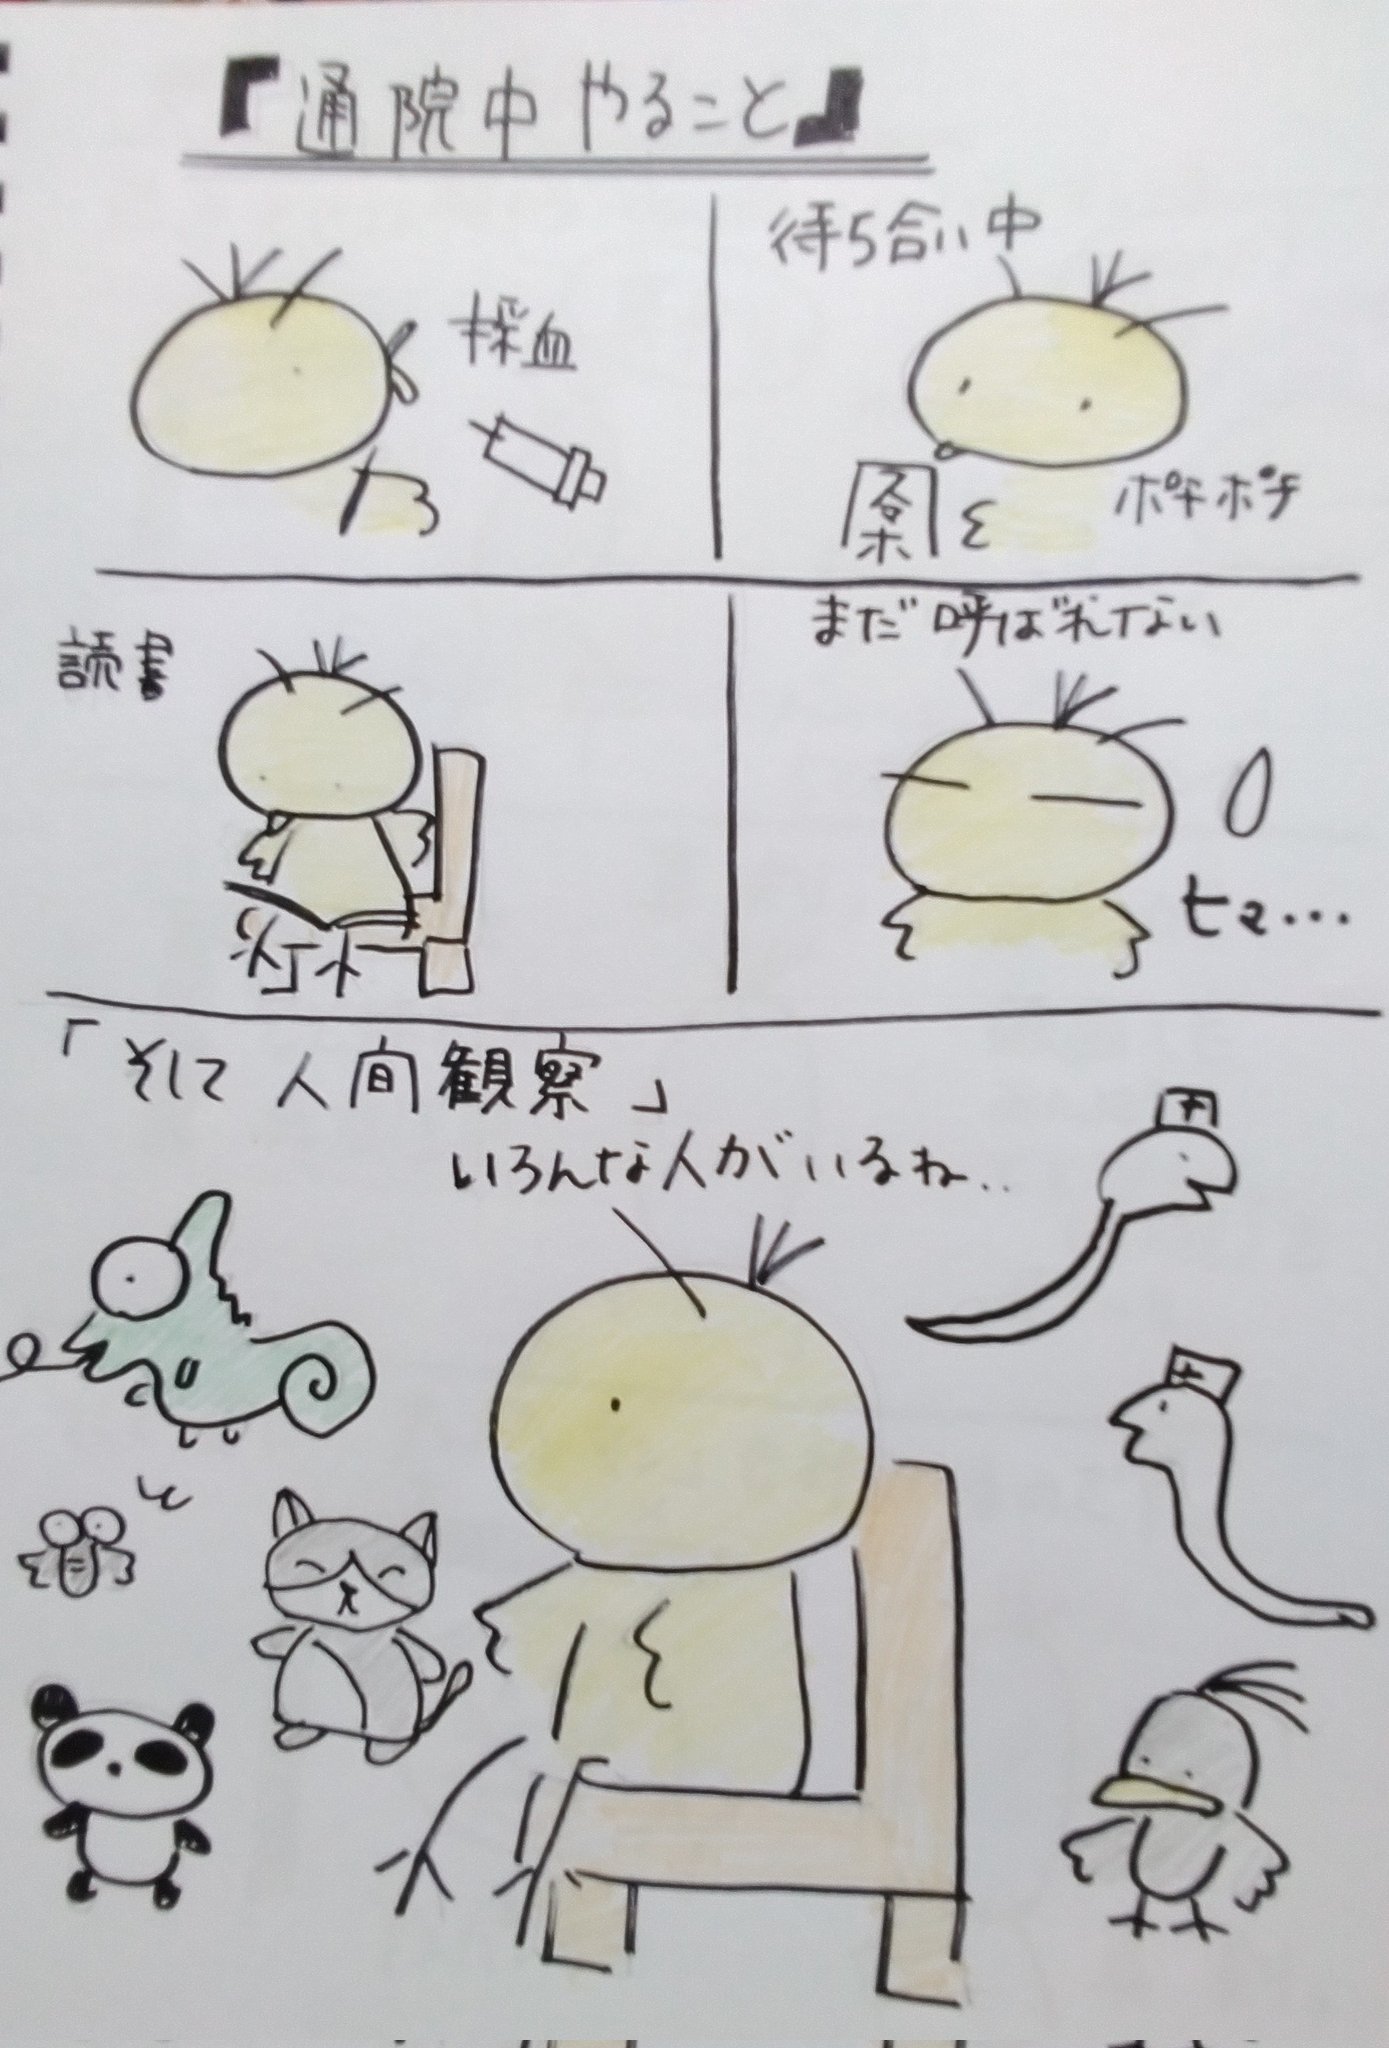 『通院中やること』
採血
待ち合い中
ポチポチ
読書
まだ呼ばれてない
ヒマ・・・
「そして人間観察」
いろんな人がいるね‥